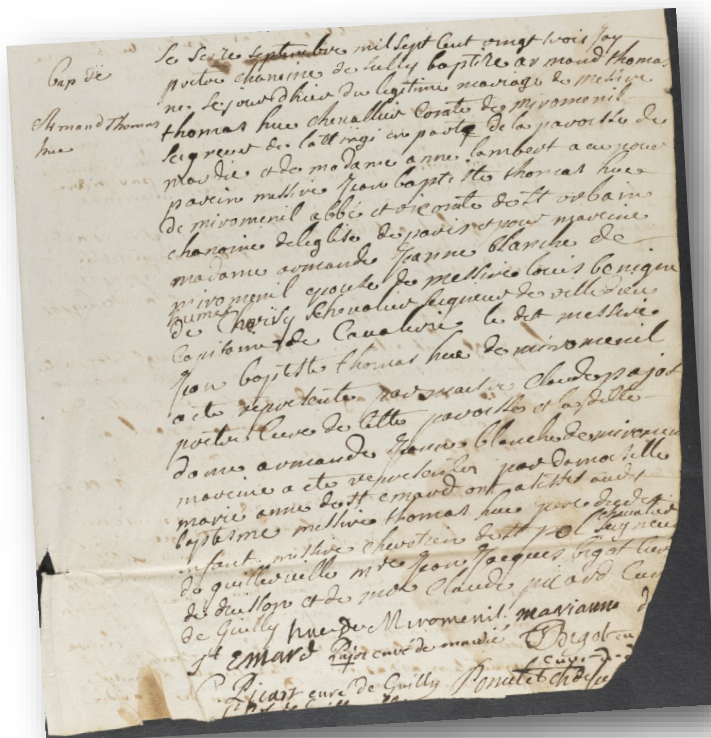 bap de
Armand Thomas
hue
Le seize septembre mil sept cent vingt trois jay
pretre chanoine de sully baptize armand thomas
ne le jour dhier du legitime mariage de messire
thomas hue chevallier Comte de miromenil
seigneur de lattingi en partie de la paroisse de
mardie et de madame anne lambert a eu pour
parein messire jean baptiste thomas hue
de miromenil abbé et vicomte de St urbain
chanoine de leglise de paris et pour mareine
madame armande jeanne blanche de
miromenil epouse de messire louis benigne
de Choisy chevalier seigneur de ville dieu
Capitaine de Cavalerie le dit messire
jean baptiste thomas hue de miromenil
a ete represente par maitre Claude pajot
pretre Cure de cette paroisse et la ditte
dame armande jeanne blanche de miromenil
mareine a ete representee par damoiselle
marie anne de St emard ont assisté audit
baptesme messire thomas hue pere dudit
enfant messire chevalier de St pol seigneur
de guillerville mre jean jacques bigot Cure
de et de mre Claude picard Cure
de Guilly hue De Miromenil marianne d
St Emard Pajot curé de mardié Bigot
cure de
C Picart curé de Guilly